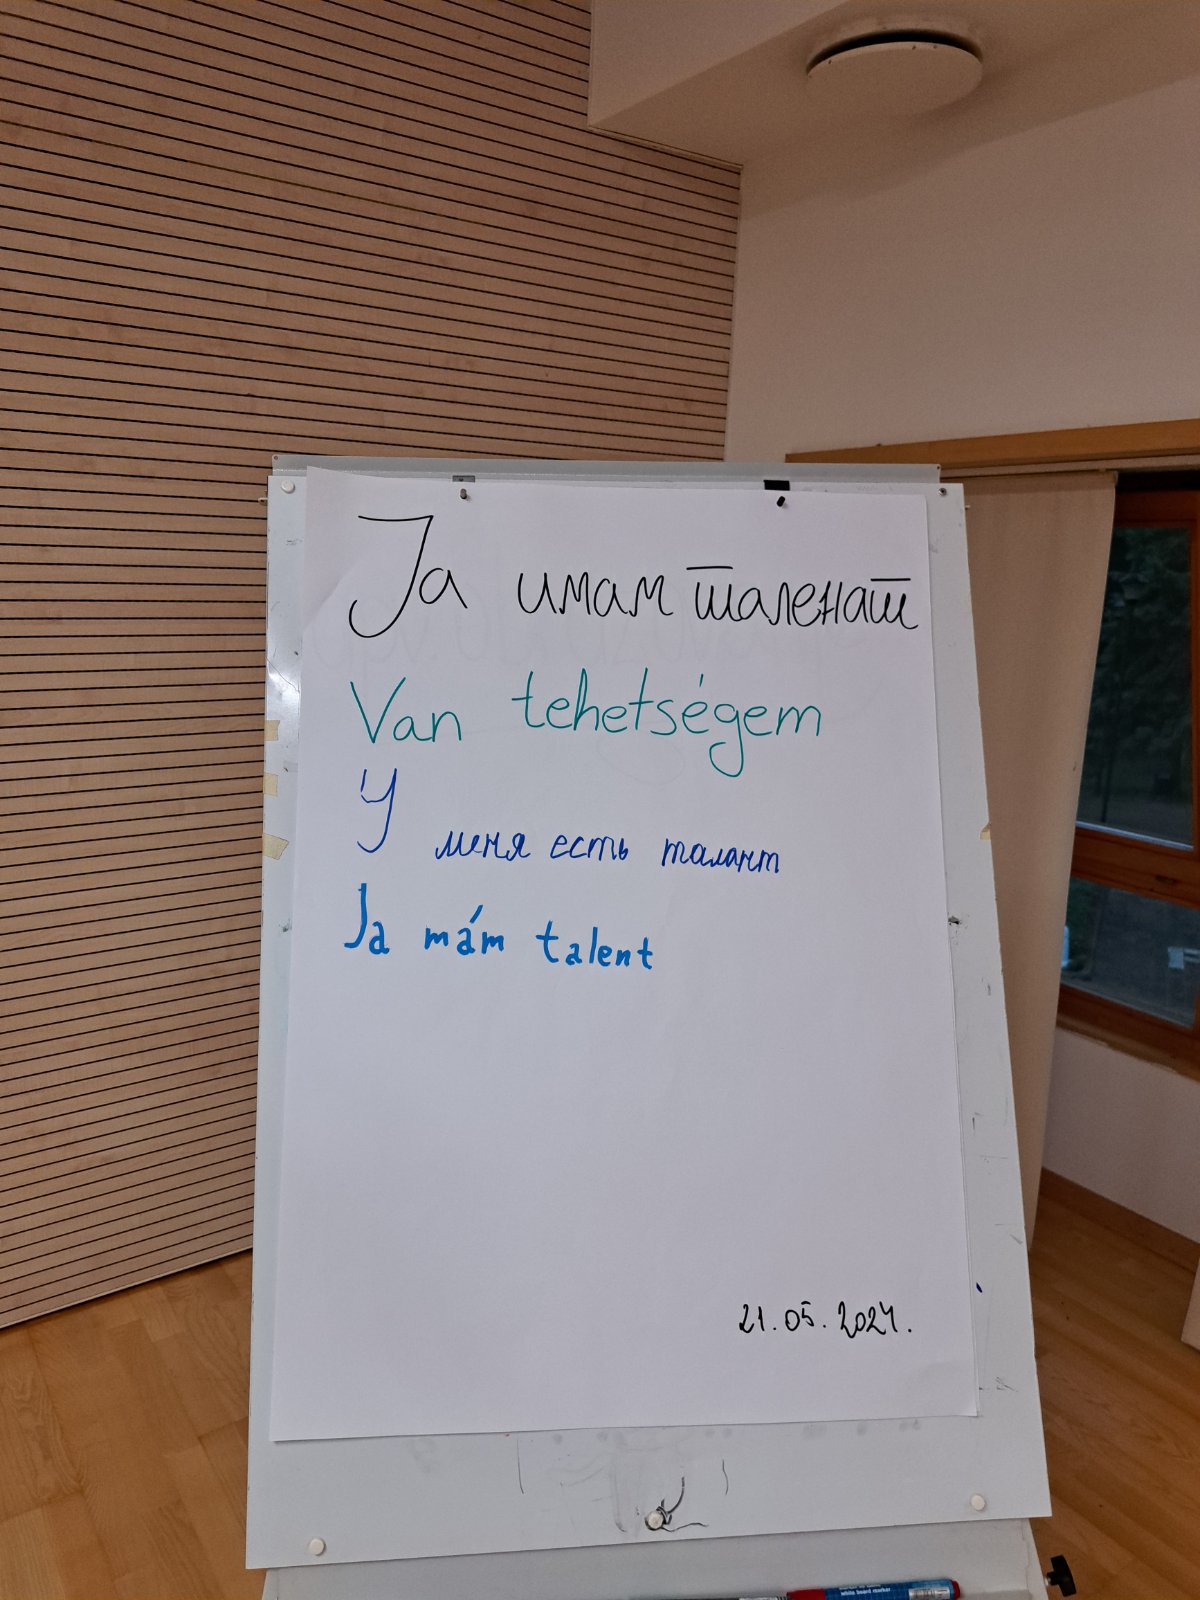 Ја имам таленат
Van tehetségem
У меня есть талант
Ja mám talent
21.05.2024.
white board marker